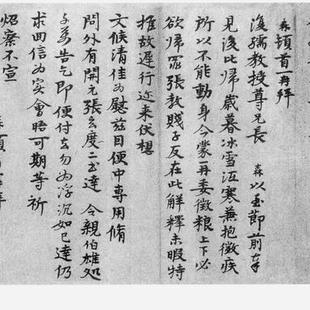 森頓首再拜
復孺教授尊兄長 森以至節前奉
見後比歸歲暮冰雪冱寒兼抱微疾
所以不能動身今蒙一再委徵粮上下必
欲歸罪張教賤子反在此解釋未暇特
推故遲行近来伏想
文候清佳為慰茲因便中專用脩
問外有開元張玄度二書達 令親伯雄処
多為告乞即便付去勿為浮沉如已達仍
求回信為實會晤可期等祈
炤察不宣
森頓首再拜